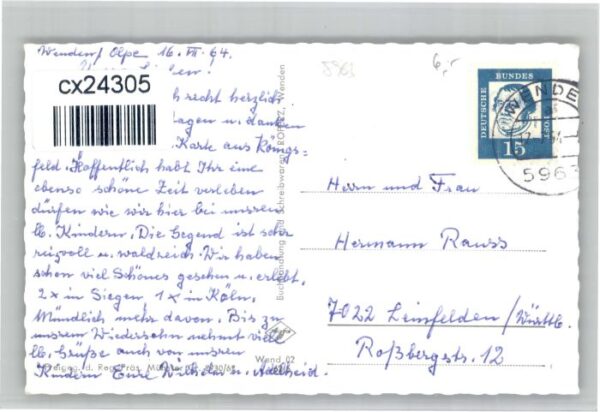 Wenden/Olpe 16. VII. 64.
cx24305
recht herzlich
sagen u. danken
Karte aus Königs-
feld. Hoffentlich habt Ihr eine
ebenso schöne Zeit verleben
dürfen wie wir hier bei unseren
lb. Kindern. Die Gegend ist sehr
reizvoll u. waldreich. Wir haben
schon viel Schönes gesehen u. erlebt.
2x in Siegen 1x in Köln.
Mündlich mehr davon. Bis zu
unserem Wiedersehn nehmt viele
lb. Grüße auch von unseren
Kindern Eure Wilhelm u. Adelheid.
Wend. 02
8963
6,-
DEUTSCHE BUNDESPOST
15
WENDE
5963
Herrn und Frau
Hermann Rauss
7022 Leinfelden/Württb.
Roßbergstr. 12